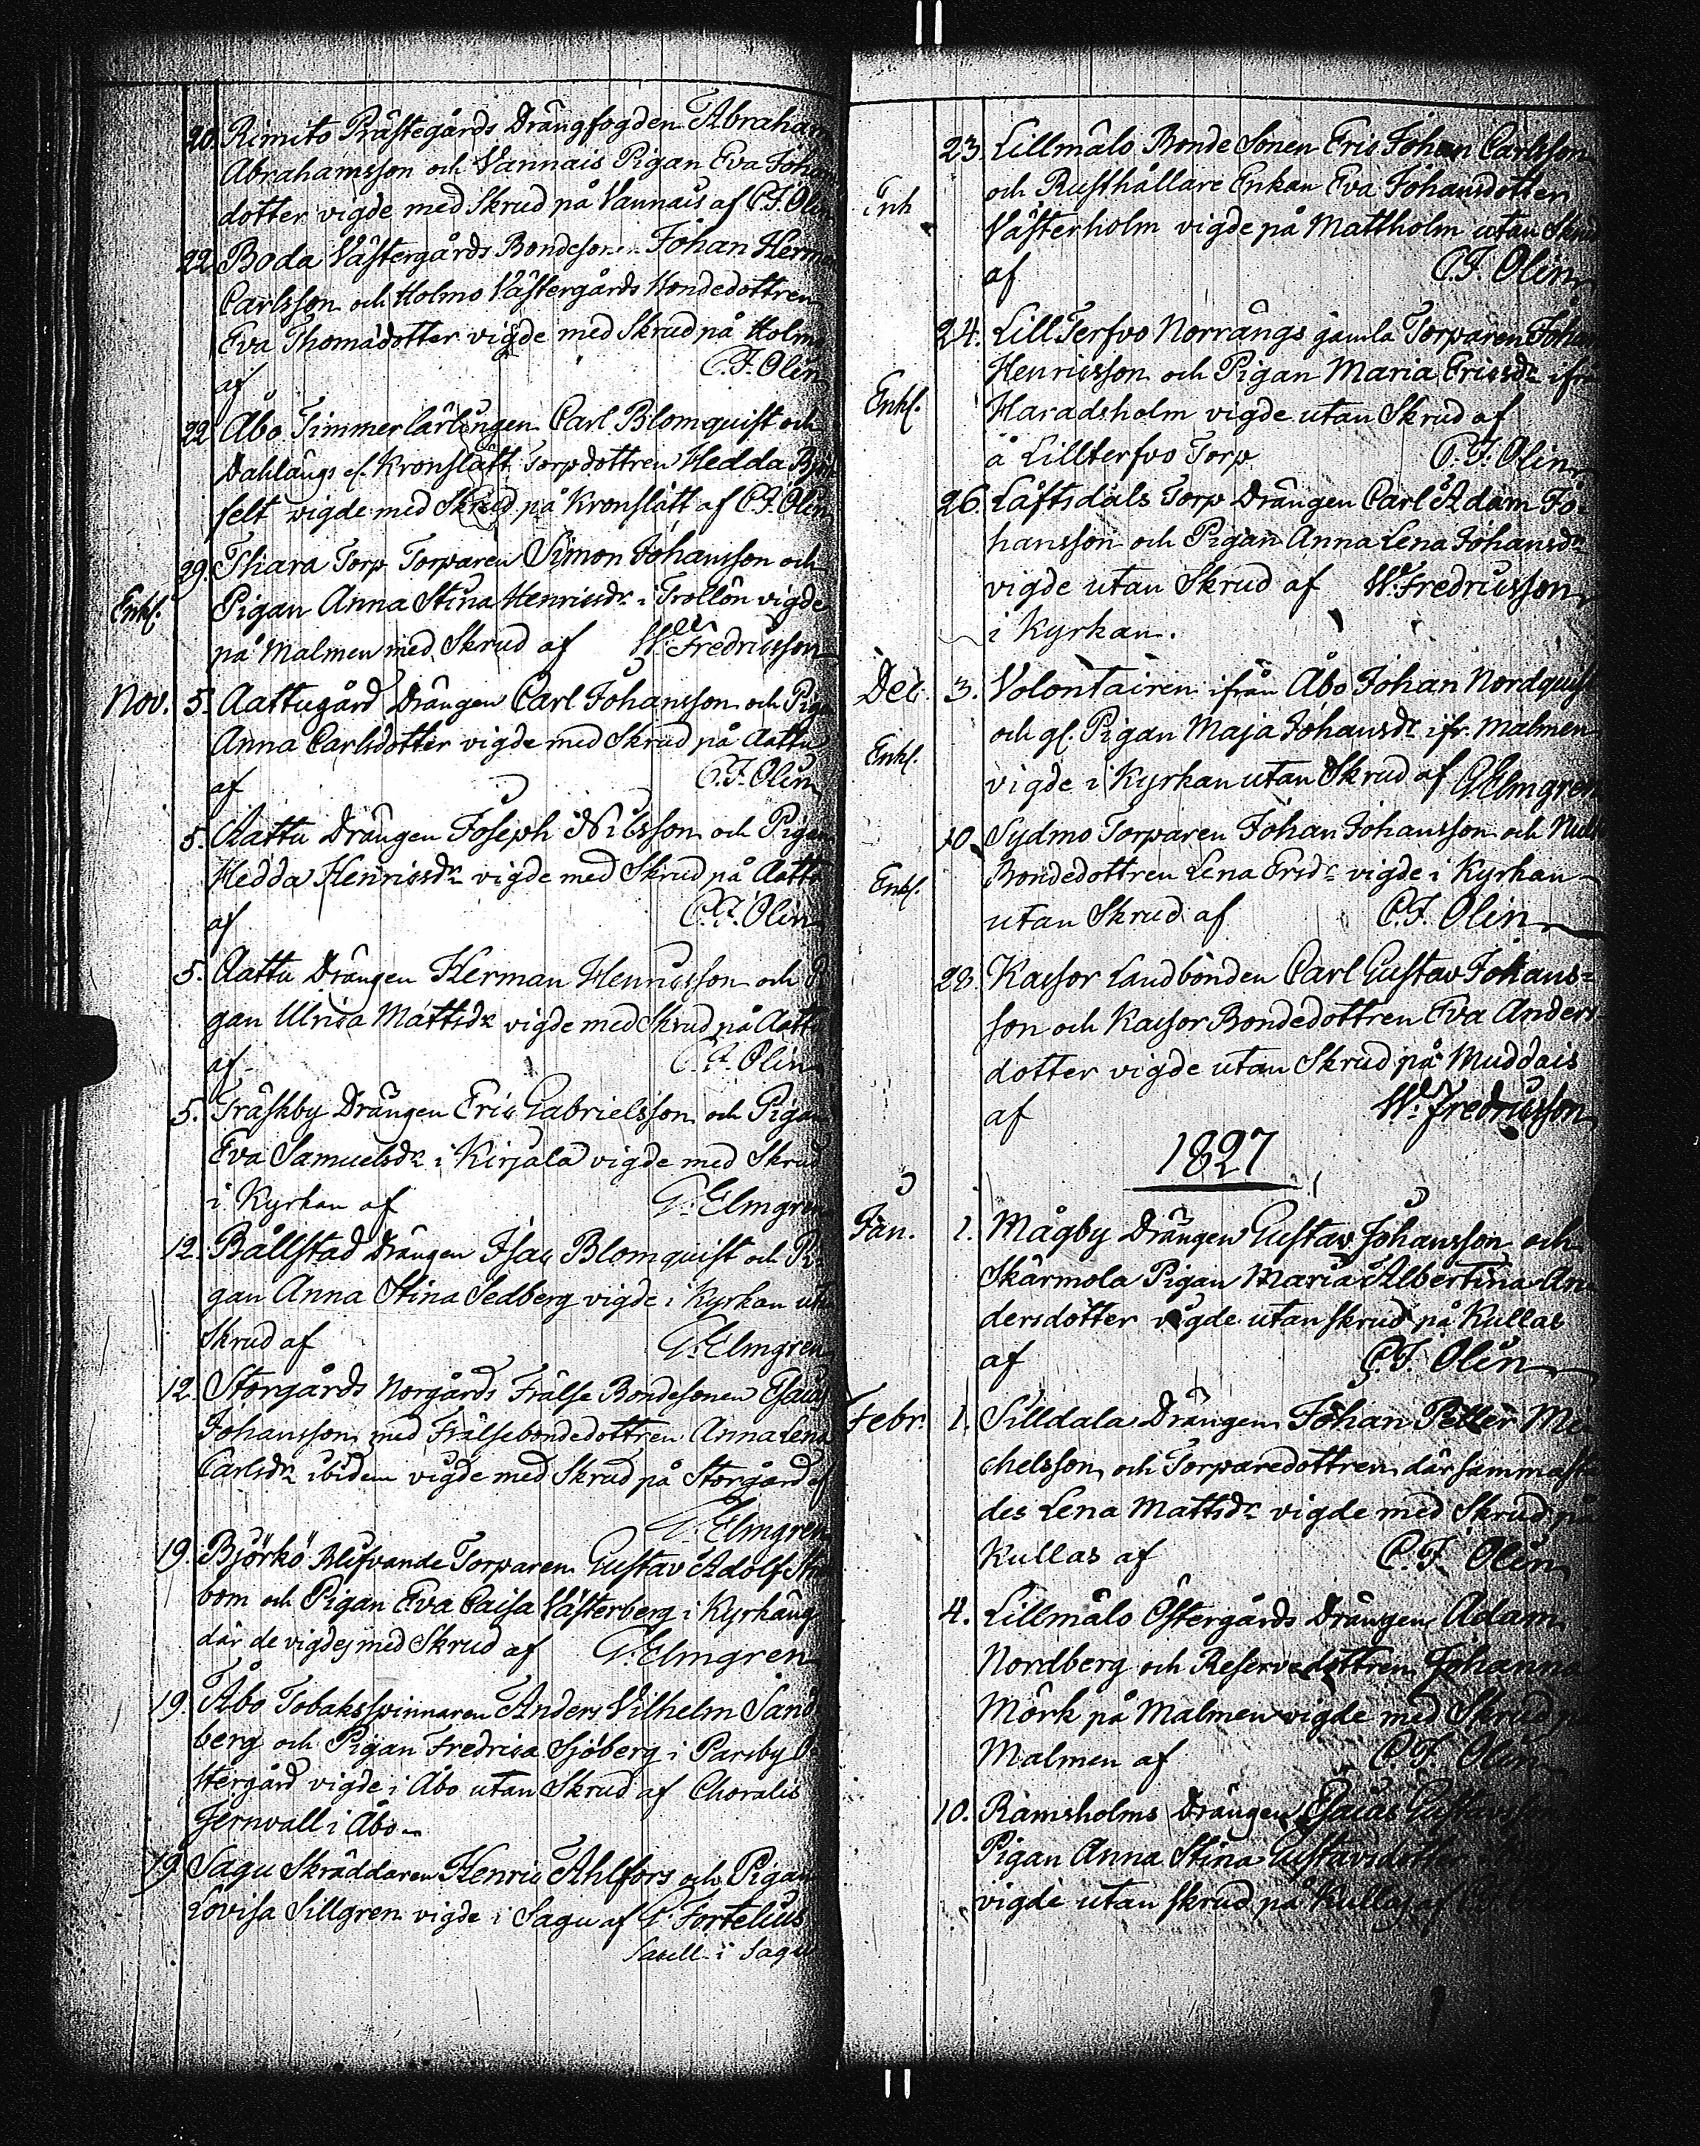 20. Rimito Prästegårds Drängfogden Abraham
Abrahamsson och Vannais Pigan Eva Johan
dotter vigde med Skrud på Vannais af C.F. Olin
22 Boda Västergårds Bondeson Johan Herman
Carlsson och Holmo Västergårds Bondedottren
Eva Thomädotter vigde med Skrud på Holmo
af C.F. Olin
22 Åbo Timmerlärlingen Carl Blomquist och
Dahlängs el. Kronslätt Torpdottren Hedda
felt vigde med Skrud på Kronslätt af C.F. Olin
29. Thiara Torp Torparen Simon Johansson och
Enkl. Pigan Anna Stina Henricsdr i Trollön vigde
på Malmen med Skrud af W. Fredricsson
Nov. 5. Aattugård Drängen Carl Johansson och Pigan
Anna Carlsdotter vigde med Skrud på Aattu
af C.F. Olin
5. Aattu Drängen Joseph Nilsson och Pigan
Hedda Henricsdr vigde med Skrud på Aattu
af C.F. Olin
5. Aattu Drängen Herman Henricsson och Pi
gan Ulrica Mattsdr vigde med Skrud på Aattu
af C.F. Olin
5. Träskby Drängen Eric Gabrielsson och Pigan
Eva Samuelsdr i Kirjala vigde med Skrud
i Kyrkan af G. Elmgren
12. Bållstad Drängen Isac Blomquist och Pi
gan Anna Stina Sedberg vigde i Kyrkan utan
Skrud af G. Elmgren
12. Storgårds Norgårds Frälse Bondesonen Esaias
Johansson med Frälsebondedottren Anna Lena
Carlsdr ibidem vigde med Skrud på Storgård af
G. Elmgren
19. Björkö Blifvande Torparen Gustav Adolf
bom och Pigan Eva Caisa Västerberg i Kyrkäng
där de vigdes med Skrud af G. Elmgren
19. Åbo Tobaksspinnaren Anders Vilhelm Sand
berg och Pigan Fredrica Sjöberg i Parsby Ö
stergård vigde i Åbo utan Skrud af Choralis
Jernvall i Åbo
19 Sagu Skräddaren Henric Ahlfors och Pigan
Lovisa Sillgren vigde i Sagu af G. Fortelius
Sacell. i Sagu
23. Lillmälo Bonde Sonen Eric Johan Carlsson
Enk och Rusthållare Enkan Eva Johansdotter
Västerholm vigde på Mattholm utan Skrud
af C.F. Olin
24. Lill Terfvo Norrängs gamla Torparen Johan
Henricsson och Pigan Maria Ericsdr ifr
Enkl. Haradsholm vigde utan Skrud af
å Lillterfvo Torp C.F. Olin
26 Låftsdals Torp Drängen Carl Adam Jo
hansson och Pigan Anna Lena Johansdr
vigde utan Skrud af W. Fredricsson
i Kyrkan.
Dec. 3. Volontairen ifrån Åbo Johan Nordquist
och gl. Pigan Maja Johansdr ifr. Malmen
Enkl. vigde i Kyrkan utan Skrud af G. Elmgren
10. Sydmo Torparen Johan Johansson och
Bondedottren Lena Ersdr vigde i Kyrkan
Enkl. utan Skrud af C.F. Olin
28. Kassor Landbonden Carl Gustav Johans=
son och Kassor Bondedottren Eva Anders
dotter vigde utan Skrud på Muddais
af W. Fredricsson
1827
Jan. 1. Mågby Drängen Gustav Johansson och
Skärmola Pigan Maria Albertina An
dersdotter vigde utan skrud på Kullas
af C.F. Olin
Febr. 1. Silldala Drängen Johan Petter Mi
chelsson och Torparedottren därsammastä
des Lena Mattsdr vigde med Skrud på
Kullas af C.F. Olin
4. Lillmälo Östergårds Drängen Adam
Nordberg och Reservedottren Johanna
Mörk på Malmen vigde med Skrud på
Malmen af C.F. Olin
10. Ramsholms Drängen Esaias
Pigan Anna Stina Gustavsdotter
vigde utan skrud på Kullas af